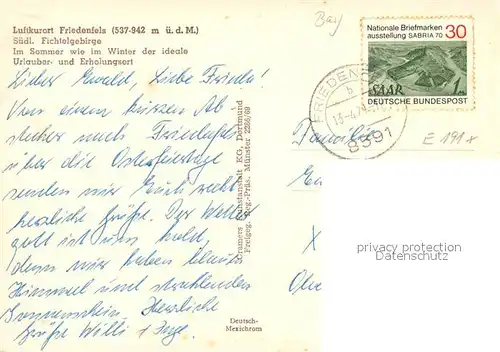 Luftkurort Friedenfels (537-942 m ü. d. M.)
Südl. Fichtelgebirge
Im Sommer wie im Winter der ideale
Urlauber- und Erholungsort
Lieber Ewald, Liebe Frieda!
Von einem kurzen Ab
stecher nach Friedenfels
über die Osterfeiertage
senden wir Euch recht
herzliche Grüße. Der Wetter
gott ist uns hold,
denn wir haben blauen
Himmel und strahlenden
Sonnenschein. Herzliche
Grüße Willi + Inge.
Cramers Kunstanstalt KG, Dortmund
Freigeg. Reg.-Präs. Münster 2286/69
Deutsch-
Mexichrom
Bay
Nationale Briefmarken
ausstellung SABRIA 70
30
SAAR 1
DEUTSCHE BUNDESPOST
FRIEDEN
b
8391
E 191x
Familie
privacy protection
Datenschutz